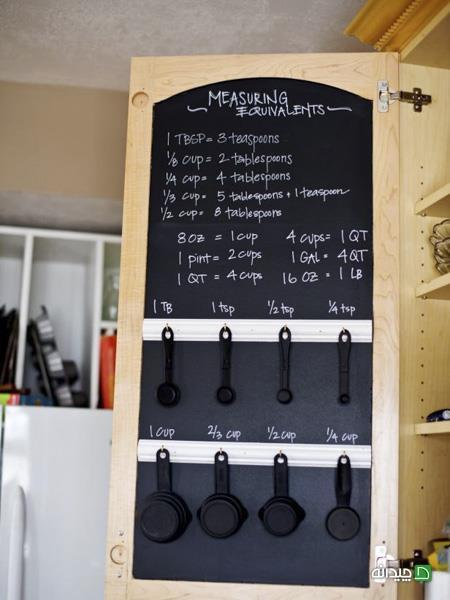 MEASURING
EQUIVALENTS
1 TBSP = 3 teaspoons
1/8 cup = 2 tablespoons
1/4 cup = 4 tablespoons
1/3 cup = 5 tablespoons + 1 teaspoon
1/2 cup = 8 tablespoons
8 oz = 1 cup 4 cups = 1 QT
1 pint = 2 cups 1 GAL = 4 QT
1 QT = 4 cups 16 OZ = 1 LB
1 TB 1 tsp 1/2 tsp 1/4 tsp
1 cup 2/3 cup 1/2 cup 1/4 cup
چیدانه